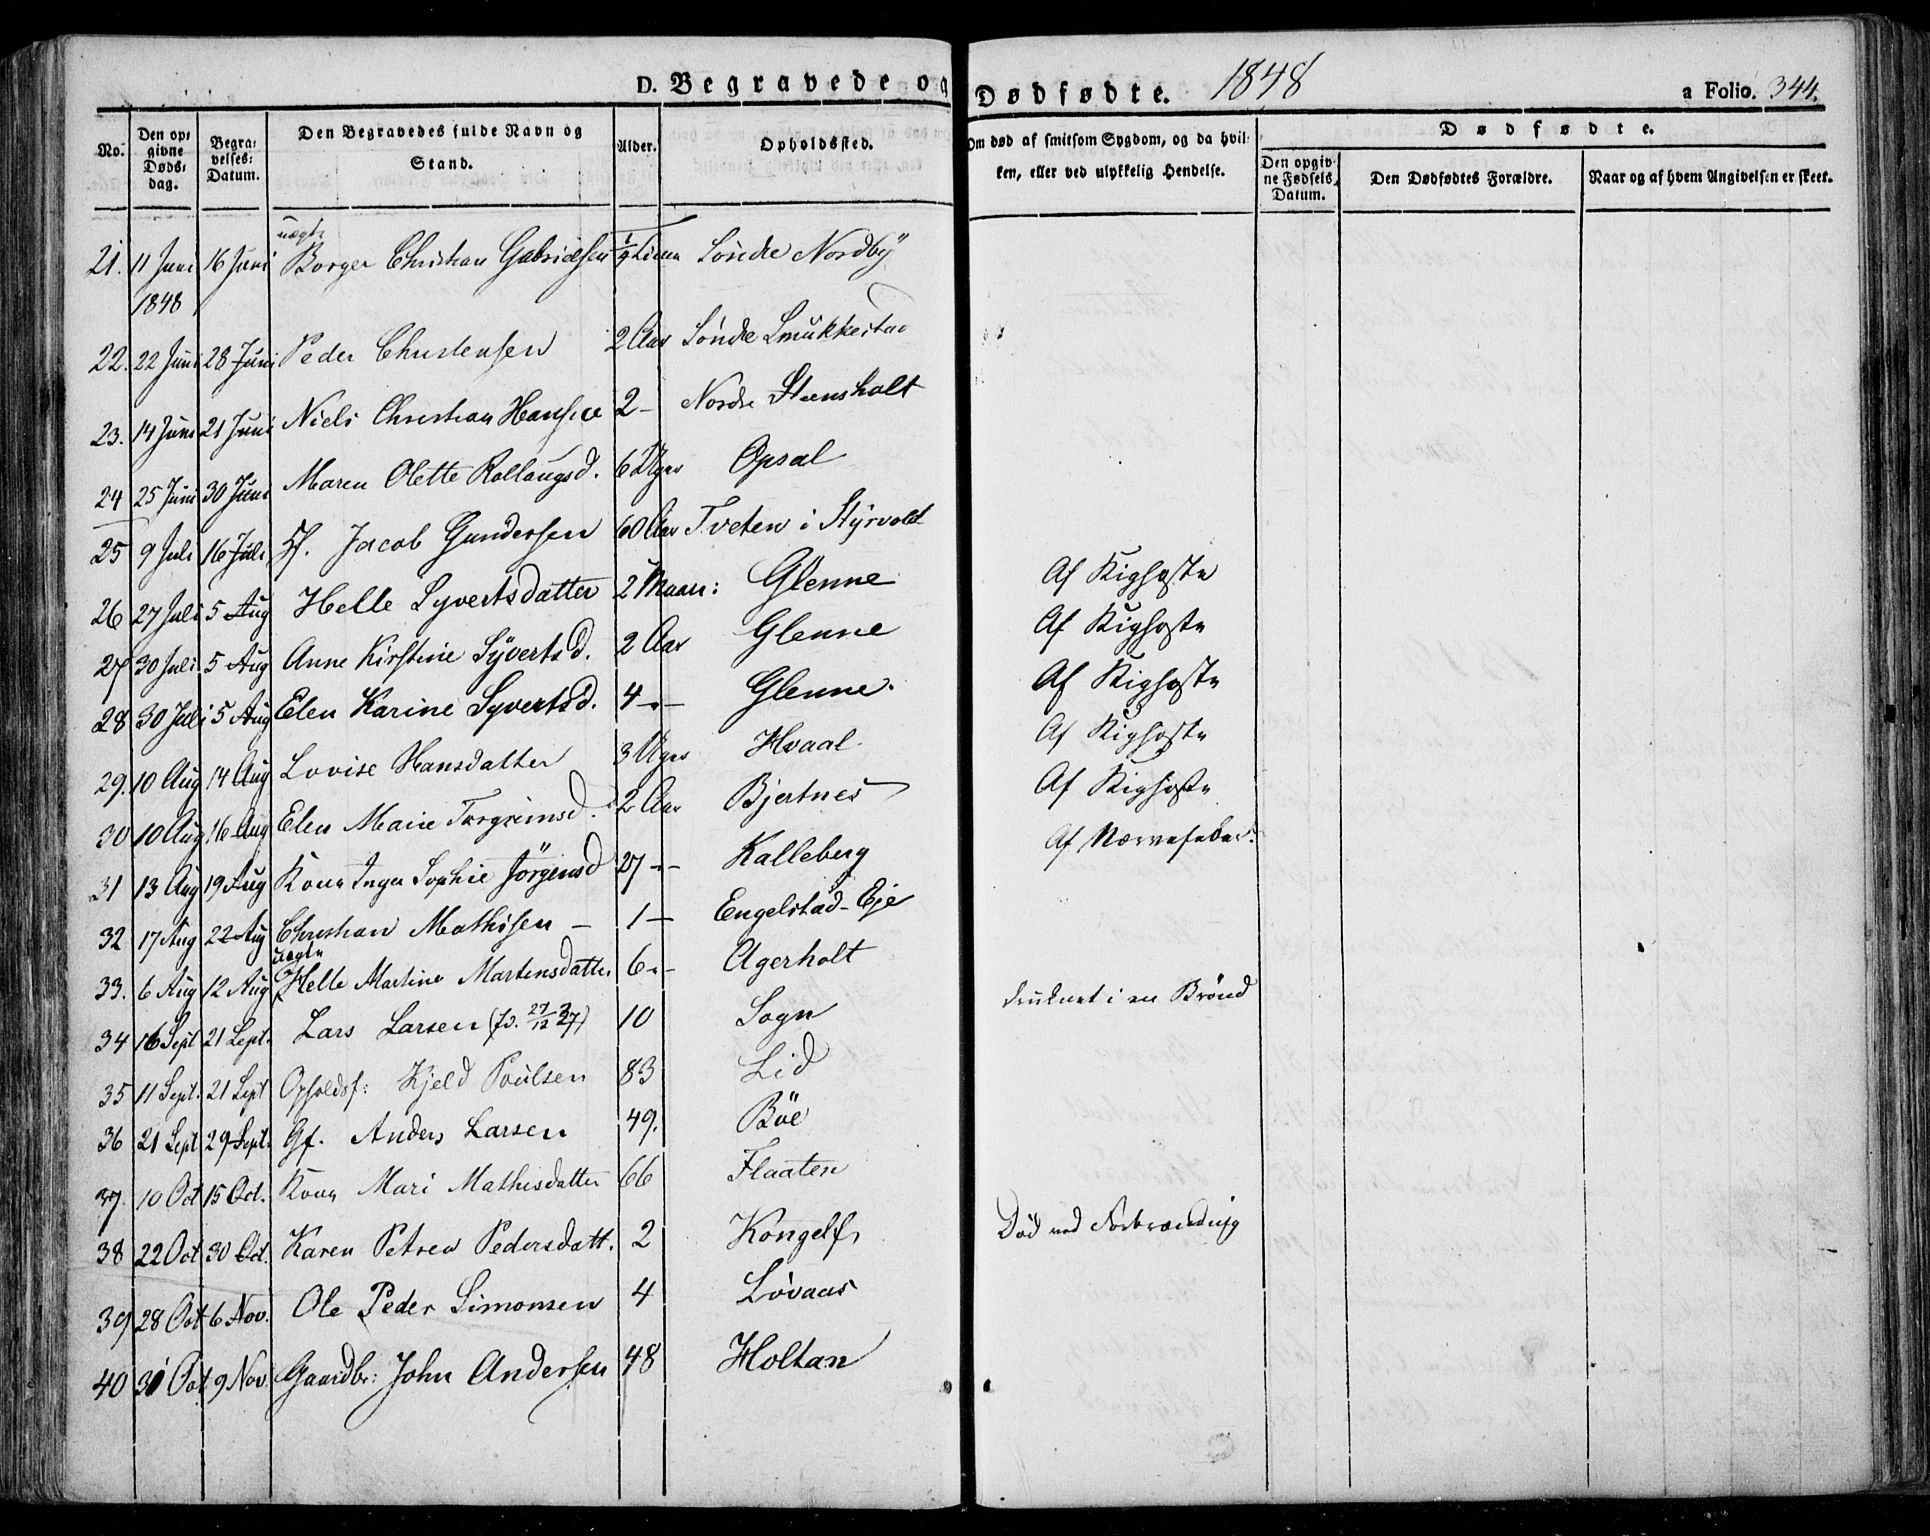 D. Begravede og Dødfødte. 1848 a Folio. 344.
No. Den opgivne Dødsdag. Begravelses: Datum. Den Begravedes fulde Navn og Stand. Alder. Opholdsted. Om død af smitsom Sygdom, og da hvilken, eller ved ulykkelig Hendelse. Dødfødte. Den opgivne Fødsels Datum. Den Dødfødtes Forældre. Naar og af hvem Angivelsen er skeet.
uægte
21. 11 Juni 16 Juni Borger Christian Gabrielsen Time Söndre Nordby
1848
22. 22 Juni 28 Juni Peder Christensen 2 Aar Söndre Smukkestad
23. 14 Juni 21 Juni Niels Christian Hansen 2 - Nordre Steensholt
24 25 Juni 30 Juni Maren Olette Rollaugsd. 6 Uger Opsal
25 9 Juli 16 Juli Jacob Gundersen 60 Aar Tveten i Styrvold
26 27 Juli 5 Aug Helle Syvertsdatter 2 Maan: Glenne Af Kighoste
27 30 Juli 5 Aug Anne Kirstine Syvertsd. 2 Aar Glenne Af Kighoste
28 30 Juli 5 Aug Elen Karine Syvertsd. 4 -"- Glenne. Af Kighoste
29. 10 Aug 14 Aug Lovise Hansdatter 3 Uger Hvaal Af Kighoste
30 10 Aug 16 Aug Elen Marie Torgrimsd. 2 Aar Bjertnes Af Kighoste
31 13 Aug 19 Aug Kone Inger Sophie Jörgensd 27 -"- Kalleberg Af Nervefeber.
32 17 Aug 22 Aug Christian Mathisen - 1 - Engelstad-Eje
uægte
33. 6 Aug 12 Aug Helle Martine Martensdatter 6 -"- Agerholt
34 16 Sept 21 Sept. Lars Larsen (fd. 27/12 37) 10 Sogn druknet i en Brönd
35 11 Sept. 21 Sept Opholdsf: Kjeld Poulsen 83 Lid
36 21 Sept 29 Sept. Gf. Anders Larsen 49. Böe
37. 10 Oct 15 Oct. Kone Mari Mathisdatter 66 Flaaten
38 22 Oct 30 Oct. Karen Petrea Pedersdatt. 2 Kongelf Död ved Forbrænding
39 28 Oct 6 Nov. Ole Peder Simonsen 4 Lövaas
40 31 Oct 9 Nov. Gaardbr: John Andersen 48 Holtan